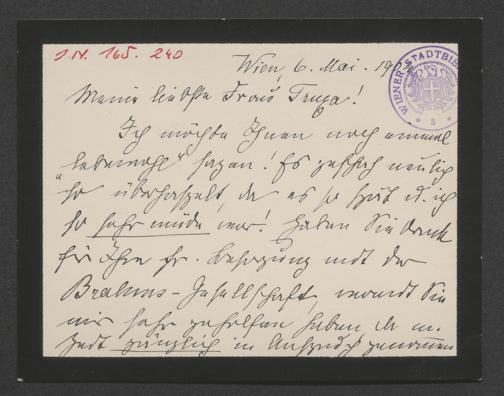 I.N. 165. 240
Wien, 6. Mai. 190
WIENER STADTBI
3
Meine liebste Frau Truxa!
Ich möchte Ihnen noch einmal
„lebewohl“ sagen! Es geschah neulich
so überhaspelt, da es so spät u. ich
so sehr müde war! Haben Sie Dank
für Ihre fr. Besorgung mit der
Brahms-Gesellschaft, womit Sie
mir sehr geholfen haben da m.
Zeit gänzlich in Anspruch genommen